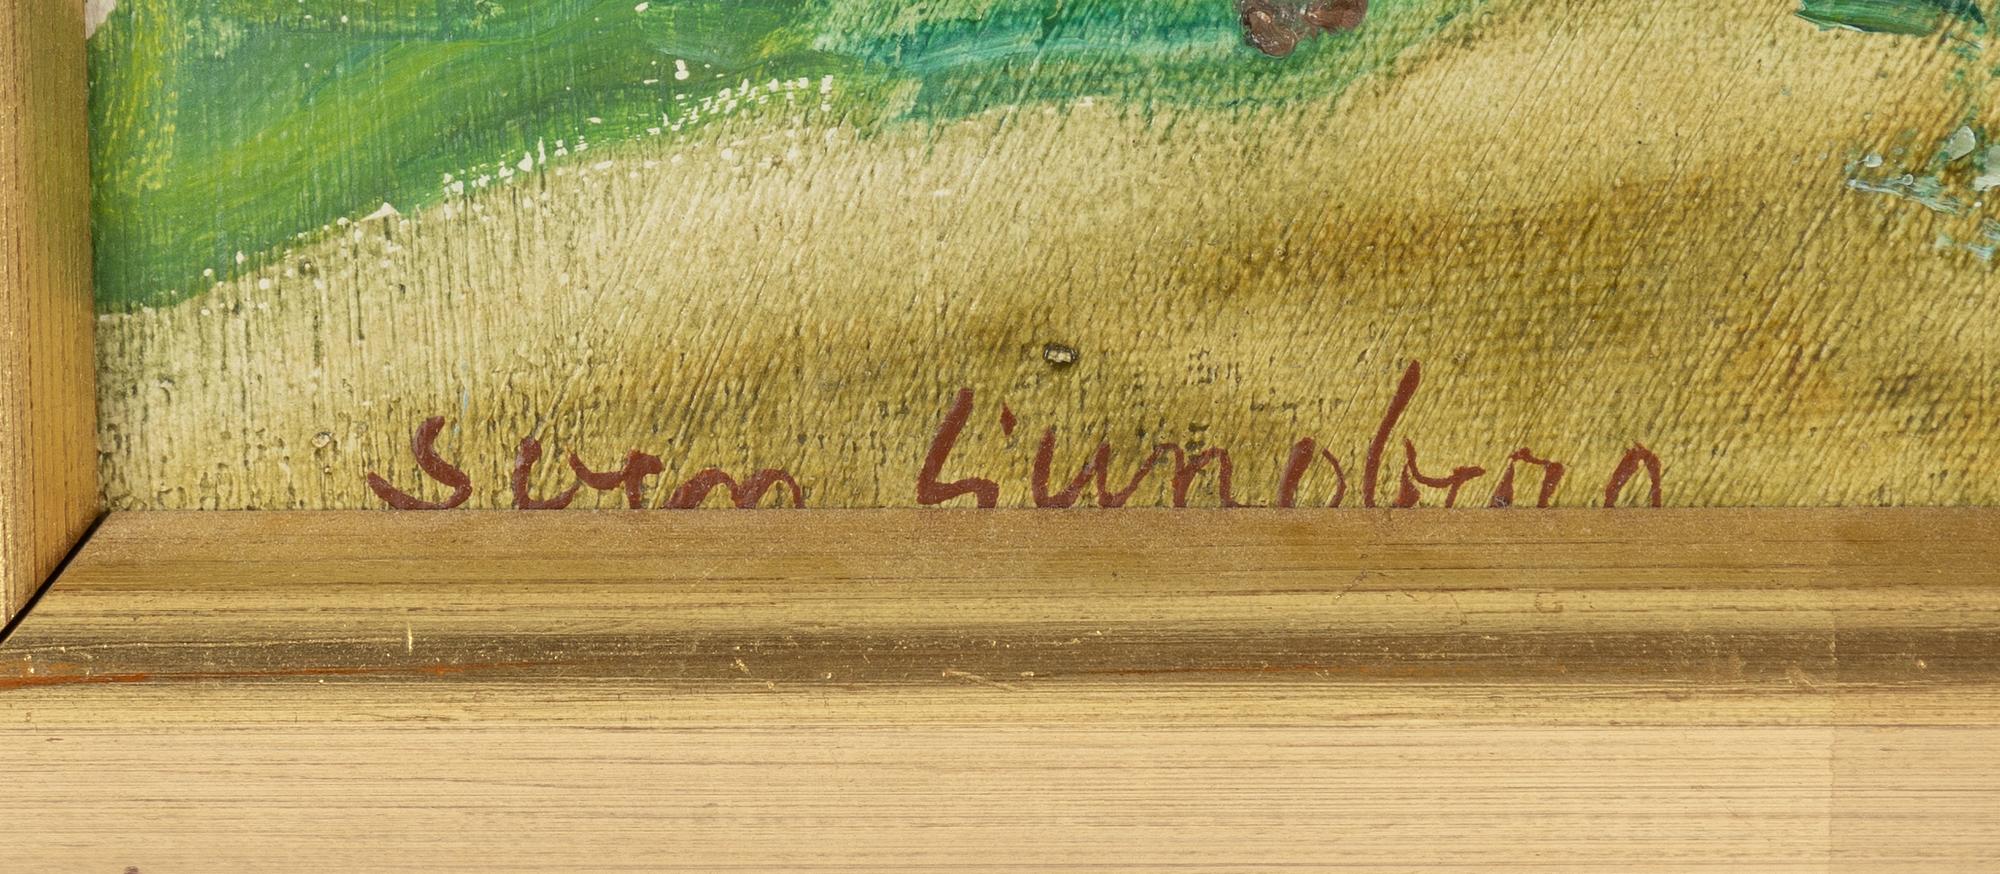 Sven Ljungberg